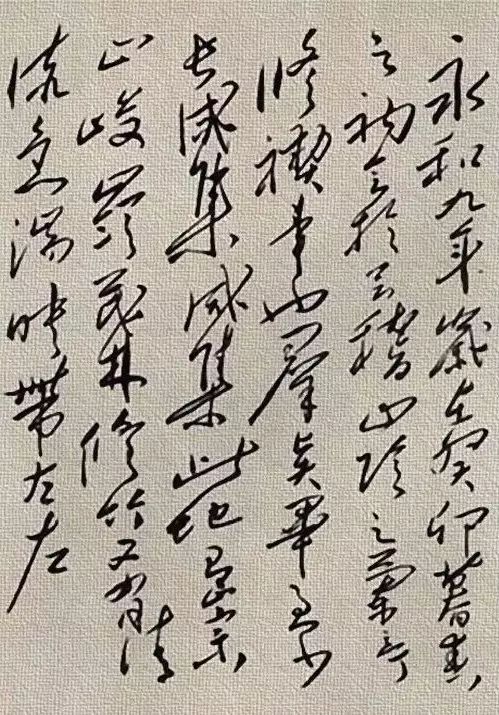 永和九年歲在癸卯暮春
之初會於會稽山陰之蘭亭
修禊事也羣賢畢至少
長咸集咸集此地有崇
山峻嶺茂林修竹又有清
流急湍映帶左右